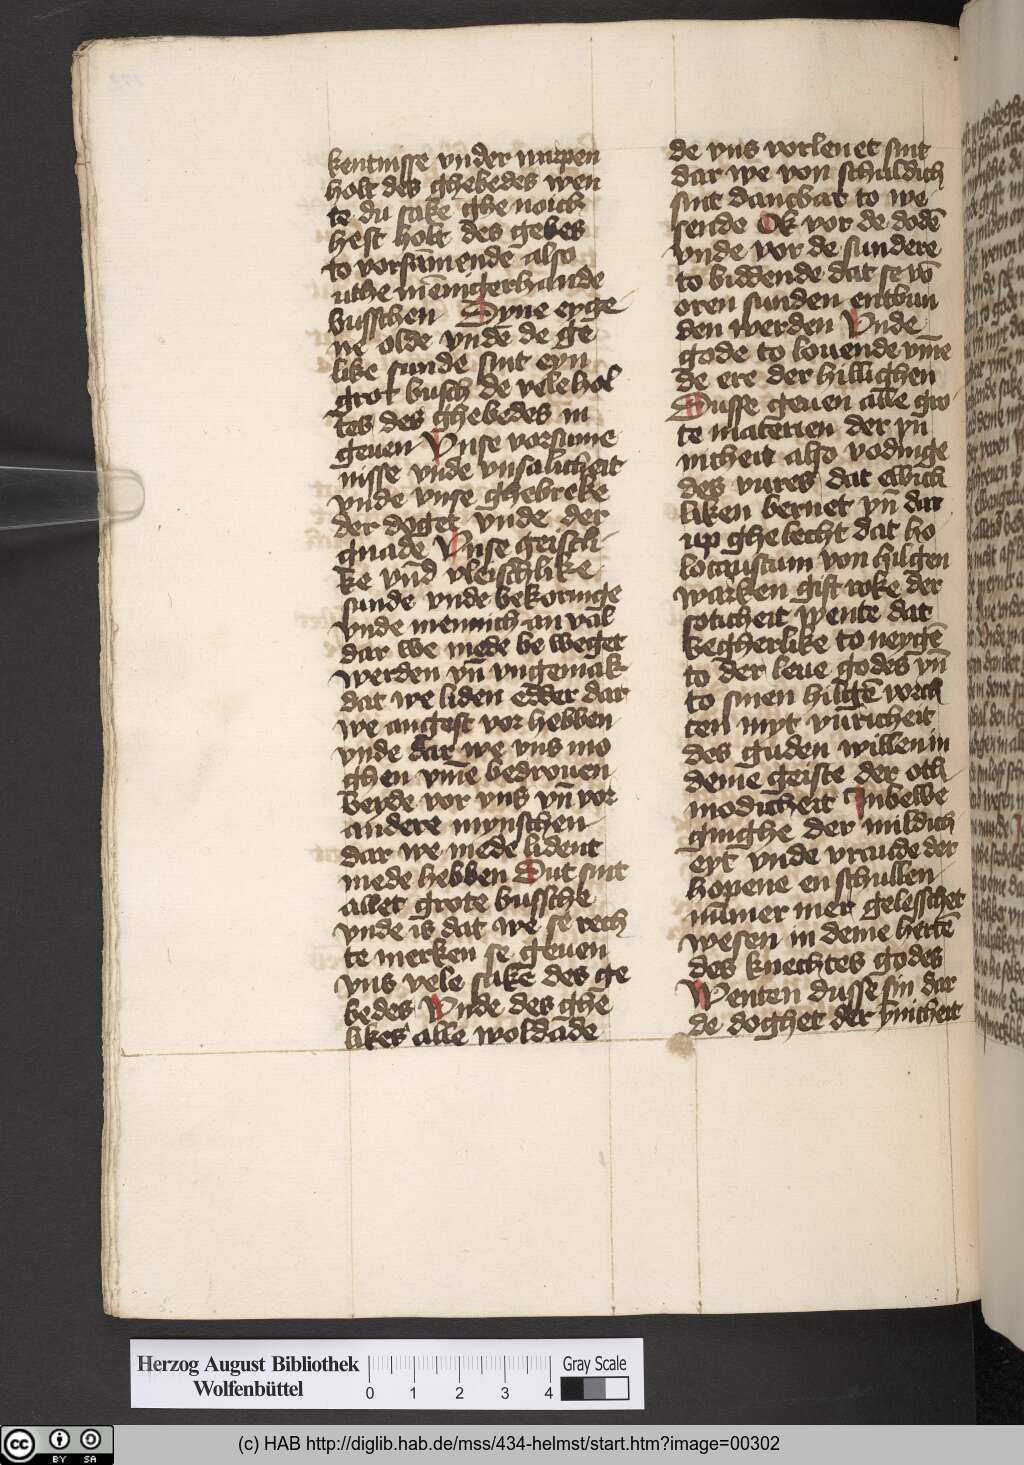 kentnisse vnder
holt des ghebedes wen
te du sake ghe noich
hest holt des gebes
to vorsāmende also
uthe mēnigerhande
busschen Dyne eyge
ne olde vnde de ge
like sunde sint eyn
grot busch de vele hol
tes des ghebedes in
geuen Vnse vorsume
nisse vnde vnsalicheit
vnde vnse ghebreke
der doget vnde der
gnade Vnse geistli
ke vnd vleischlike
sunde vnde bekoringe
vnde mennich an val
dar we mede be weget
werden vn̄ vngemak
dat we liden edder dar
we angest vor hebben
vnde dar we vns mo
ghen vm̄e bedrouen
beyde vor vns vn̄ vor
andere mynschen
dar we mede lident
mede hebben Dut sint
allet grote bussche
vnde is dat we se rech
te merken se geuen
vns vele sakē des ge
bedes Vnde des ghē
likes alle woldāde
de vns vorlenet sint
dar we von schuldich
sint dancbar to we
sende Ok vor de dodē
vnde vor de sundere
to biddende dat se vō
oren sunden entbun
den werden Vnde
gode to louende vm̄e
de ere der hillighen
Dusse geuen alle gro
te materien der yn̄
nicheit also vodinge
des vures dat ewich
liken bernet vn̄ dat
up ghelecht dat ho
locaustum von hilgen
warken gift roke der
soticheit wente dat
begherlike to neygē
to der leue godes vn̄
to sinen hilgē vorch
ten myt vuricheit
des guden willen in
deme geiste der oth
modicheit Inbelwe
ginghe der mildich
eyt vnde vraude der
hopene en schullen
nūmer mer gelesschet
wesen in deme hertē
des knechtes godes
Wenten dusse sin dar
de doghet der ynicheit
Herzog August Bibliothek
Wolfenbüttel
0 1 2 3 4
Gray Scale
cc BY SA
(c) HAB http://diglib.hab.de/mss/434-helmst/start.htm?image=00302